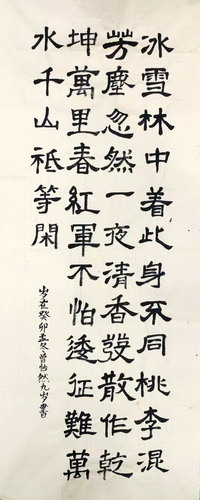 冰雪林中着此身不同桃李混
芳塵忽然一夜清香發散作乾
坤萬里春紅軍不怕遠征難萬
水千山祇等閑
岁在癸卯孟冬曾怡然九岁書